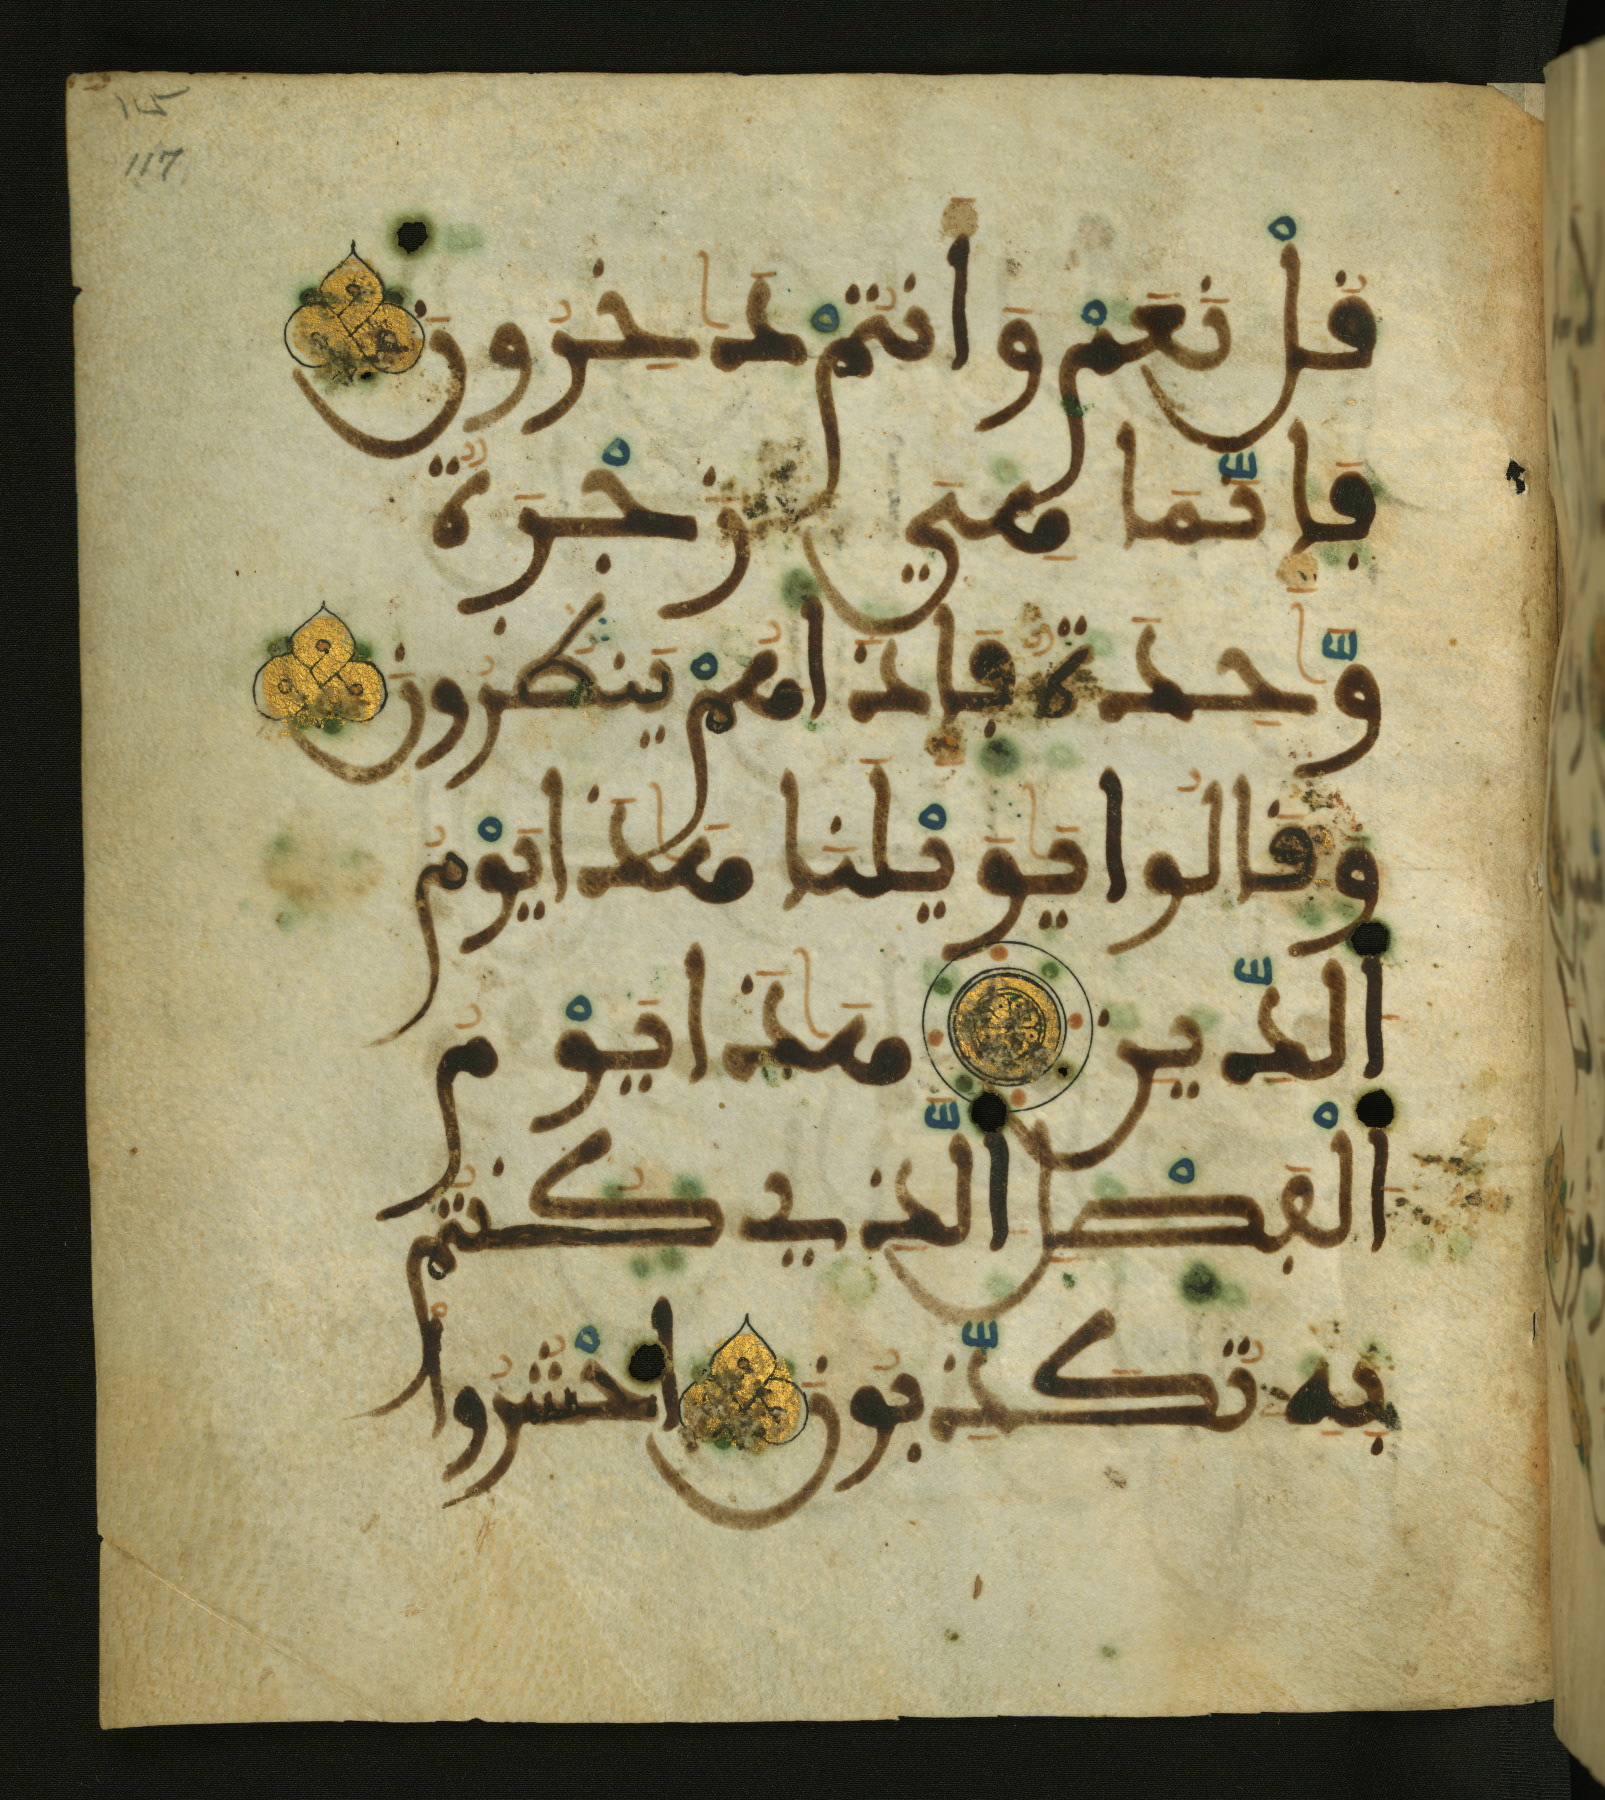 115
117
قُلْ نَعَمْ وَأَنتُمْ دَٰخِرُونَ
فَإِنَّمَا هِىَ زَجْرَةٌ
وَّٰحِدَةٌ فَإِذَا هُمْ يَنظُرُونَ
وَقَالُوا يَٰوَيْلَنَا هَٰذَا يَوْمُ
الدِّينِ هَٰذَا يَوْمُ
الْفَصْلِ الَّذِي كُنتُم
بِهِ تُكَذِّبُونَ احْشُرُوا